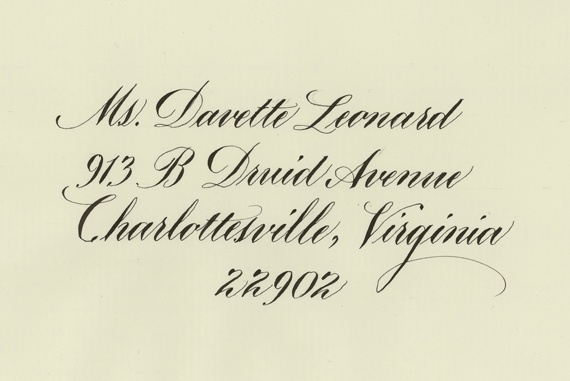 Ms. Davette Leonard
913 B Druid Avenue
Charlottesville, Virginia
22902